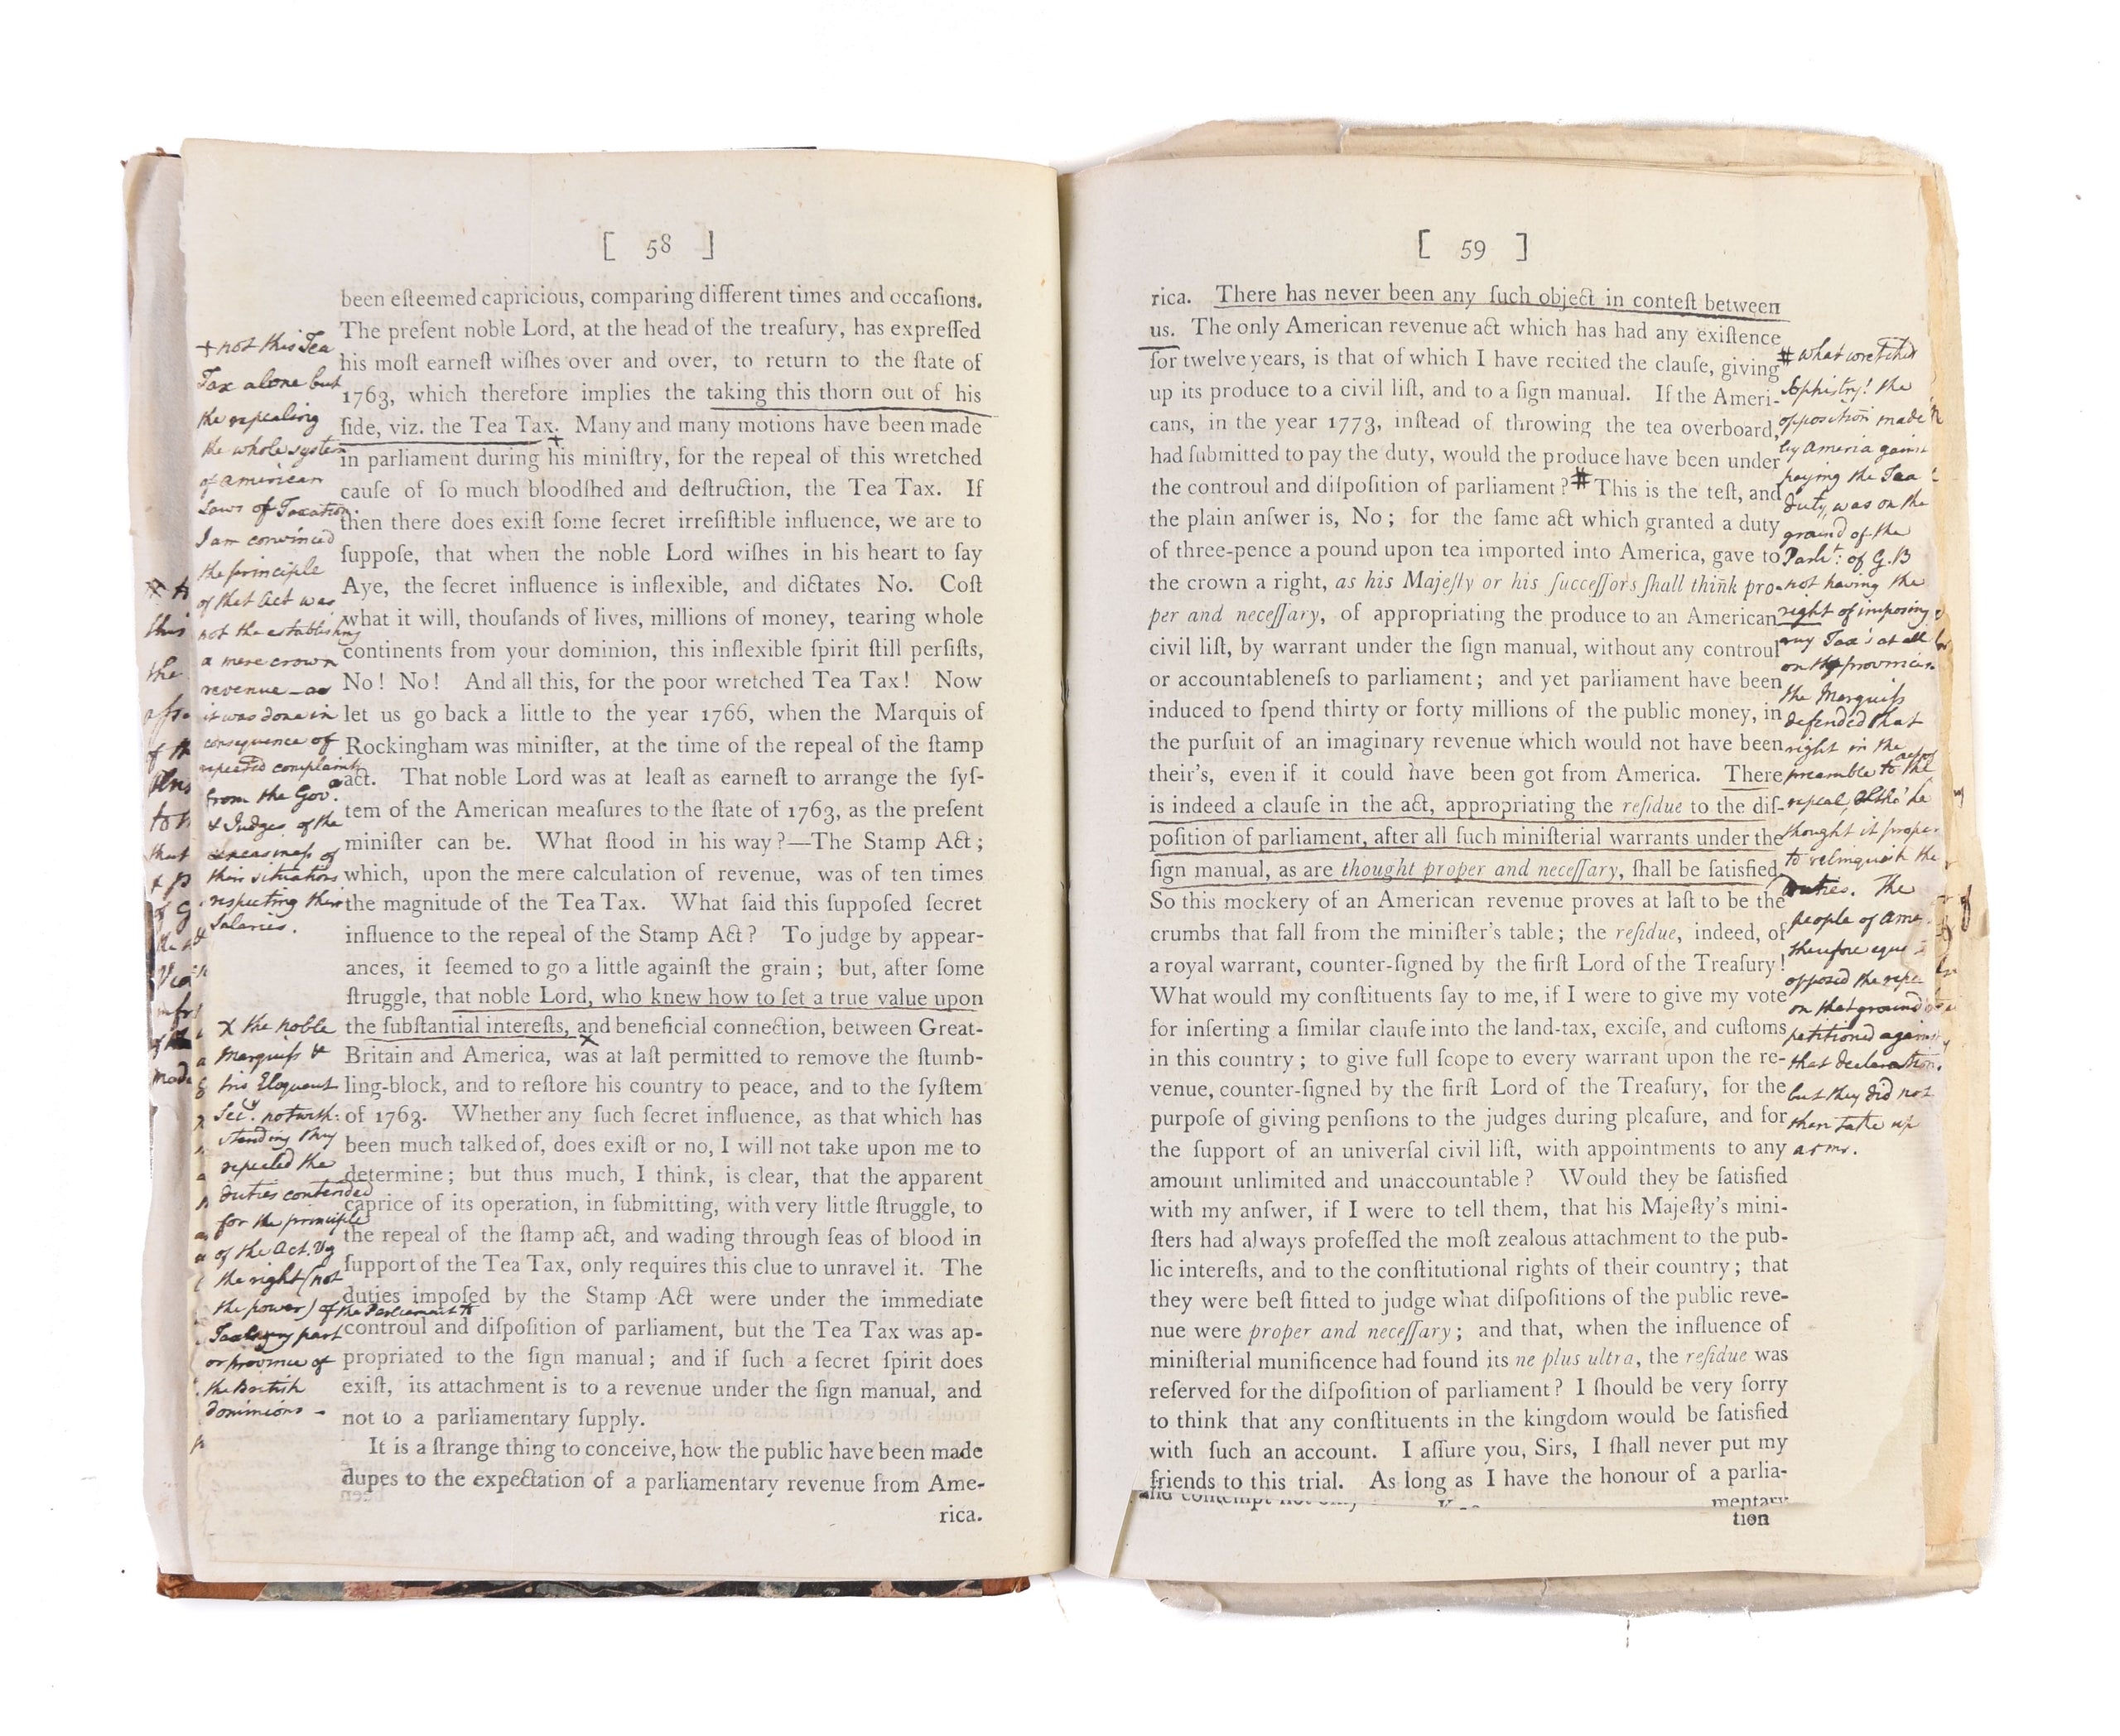 [ 58 ]
been eſteemed capricious, comparing different times and occaſions.
The preſent noble Lord, at the head of the treaſury, has expreſſed
his moſt earneſt wiſhes over and over, to return to the ſtate of
1763, which therefore implies the taking this thorn out of his
ſide, viz. the Tea Tax. Many and many motions have been made
in parliament during his miniſtry, for the repeal of this wretched
cauſe of ſo much bloodſhed and deſtruction, the Tea Tax. If
then there does exiſt ſome ſecret irreſiſtible influence, we are to
ſuppoſe, that when the noble Lord wiſhes in his heart to ſay
Aye, the ſecret influence is inflexible, and dictates No. Coſt
what it will, thouſands of lives, millions of money, tearing whole
continents from your dominion, this inflexible ſpirit ſtill perſiſts,
No! No! And all this, for the poor wretched Tea Tax! Now
let us go back a little to the year 1766, when the Marquis of
Rockingham was miniſter, at the time of the repeal of the ſtamp
act. That noble Lord was at leaſt as earneſt to arrange the ſyſ-
tem of the American meaſures to the ſtate of 1763, as the preſent
miniſter can be. What ſtood in his way?—The Stamp Act;
which, upon the mere calculation of revenue, was of ten times
the magnitude of the Tea Tax. What ſaid this ſuppoſed ſecret
influence to the repeal of the Stamp Act? To judge by appear-
ances, it ſeemed to go a little againſt the grain; but, after ſome
ſtruggle, that noble Lord, who knew how to ſet a true value upon
the ſubſtantial intereſts, and beneficial connection, between Great-
Britain and America, was at laſt permitted to remove the ſtumb-
ling-block, and to reſtore his country to peace, and to the ſyſtem
of 1763. Whether any ſuch ſecret influence, as that which has
been much talked of, does exiſt or no, I will not take upon me to
determine; but thus much, I think, is clear, that the apparent
caprice of its operation, in ſubmitting, with very little ſtruggle, to
the repeal of the ſtamp act, and wading through ſeas of blood in
ſupport of the Tea Tax, only requires this clue to unravel it. The
duties impoſed by the Stamp Act were under the immediate
controul and diſpoſition of parliament, but the Tea Tax was ap-
propriated to the ſign manual; and if ſuch a ſecret ſpirit does
exiſt, its attachment is to a revenue under the ſign manual, and
not to a parliamentary ſupply.
It is a ſtrange thing to conceive, how the public have been made
dupes to the expectation of a parliamentary revenue from Ame-
rica.
+ not this Tea
Tax alone but
the repealing
the whole system
of american
Laws of Taxation
I am convinced
the principle
of that Act was
not the establishing
a mere crown
revenue — as
it was done in
consequence of
repeated complaints
from the Gov.
& Judges of the
uneasiness of
their situations
respecting their
Salaries.
X the noble
Marquiſs &
his Eloquent
Secy. notwith:
standing they
repealed the
duties contended
for the principle
of the Act. Vg
the right (not
the power) of the Parliament to
Tax any part
or province of
the British
dominions —
[ 59 ]
rica. There has never been any ſuch object in conteſt between
us. The only American revenue act which has had any exiſtence
for twelve years, is that of which I have recited the clauſe, giving
up its produce to a civil liſt, and to a ſign manual. If the Ameri-
cans, in the year 1773, inſtead of throwing the tea overboard,
had ſubmitted to pay the duty, would the produce have been under
the controul and diſpoſition of parliament? # This is the teſt, and
the plain anſwer is, No; for the ſame act which granted a duty
of three-pence a pound upon tea imported into America, gave to
the crown a right, as his Majeſty or his ſucceſſors ſhall think pro-
per and neceſſary, of appropriating the produce to an American
civil liſt, by warrant under the ſign manual, without any controul
or accountableneſs to parliament; and yet parliament have been
induced to ſpend thirty or forty millions of the public money, in
the purſuit of an imaginary revenue which would not have been
their's, even if it could have been got from America. There
is indeed a clauſe in the act, appropriating the reſidue to the diſ-
poſition of parliament, after all ſuch miniſterial warrants under the
ſign manual, as are thought proper and neceſſary, ſhall be ſatisfied.
So this mockery of an American revenue proves at laſt to be the
crumbs that fall from the miniſter's table; the reſidue, indeed, of
a royal warrant, counter-ſigned by the firſt Lord of the Treaſury!
What would my conſtituents ſay to me, if I were to give my vote
for inſerting a ſimilar clauſe into the land-tax, exciſe, and cuſtoms
in this country; to give full ſcope to every warrant upon the re-
venue, counter-ſigned by the firſt Lord of the Treaſury, for the
purpoſe of giving penſions to the judges during pleaſure, and for
the ſupport of an univerſal civil liſt, with appointments to any
amount unlimited and unaccountable? Would they be ſatisfied
with my anſwer, if I were to tell them, that his Majeſty's mini-
ſters had always profeſſed the moſt zealous attachment to the pub-
lic intereſts, and to the conſtitutional rights of their country; that
they were beſt fitted to judge what diſpoſitions of the public reve-
nue were proper and neceſſary; and that, when the influence of
miniſterial munificence had found its ne plus ultra, the reſidue was
reſerved for the diſpoſition of parliament? I ſhould be very ſorry
to think that any conſtituents in the kingdom would be ſatisfied
with ſuch an account. I aſſure you, Sirs, I ſhall never put my
friends to this trial. As long as I have the honour of a parlia-
mentary
tion
# what wretched
Sophistry! the
opposition made
by America against
paying the Tea
duty, was on the
ground of the
Parlt: of G.B
not having the
right of imposing
any Tax's at all
on the provinces
the Marquiſs
defended that
right in the
preamble to the
repeal, altho' he
thought it proper
to relinquish the
duties. The
people of Ame
therefore
opposed the
on that ground
petitioned against
that declaration.
but they did not
then take up
arms.